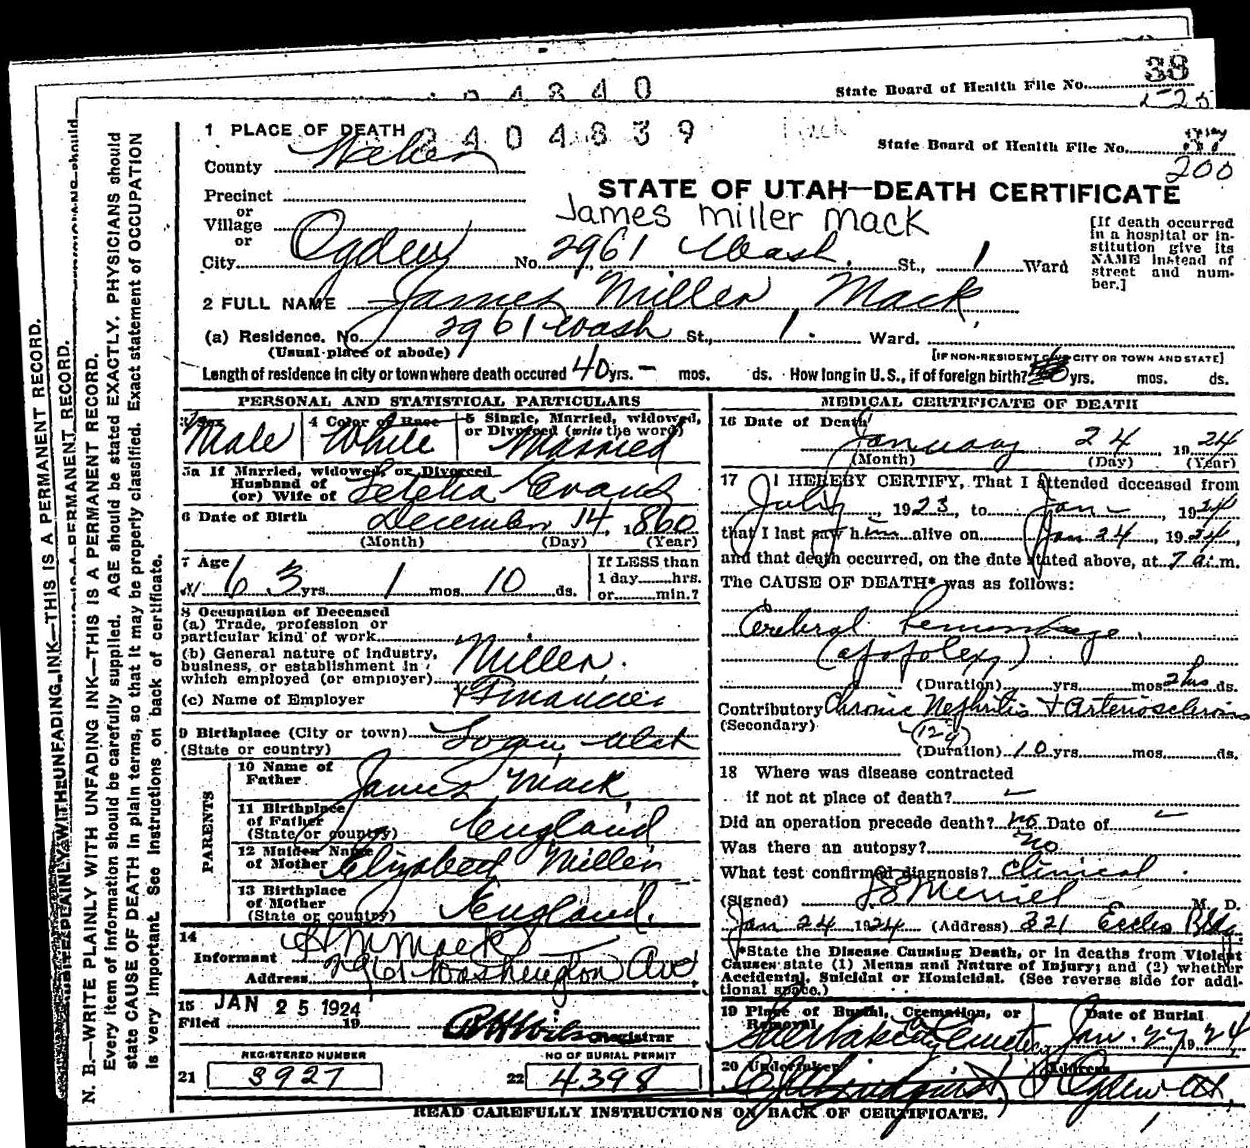 04840
State Board of Health File No. 38
2404839
State Board of Health File No. 37
200
1 PLACE OF DEATH
County Weber
STATE OF UTAH—DEATH CERTIFICATE
Precinct
or
Village
or
James Miller Mack
City Ogden No. 2961 Wash. St., 1 Ward
[If death occurred in a hospital or institution give its NAME instead of street and number.]
2 FULL NAME James Miller Mack
(a) Residence. No. 2961 Wash St., 1. Ward.
(Usual place of abode)
[IF NON-RESIDENT GIVE CITY OR TOWN AND STATE]
Length of residence in city or town where death occured 40 yrs. — mos. ds. How long in U.S., if of foreign birth? yrs. mos. ds.
PERSONAL AND STATISTICAL PARTICULARS
3 Sex Male
4 Color or Race White
5 Single, Married, widowed, or Divorced (write the word) Married
5a If Married, widowed, or Divorced
Husband of
(or) Wife of Letetia Evans
6 Date of Birth December 14, 1860
(Month) (Day) (Year)
7 Age
63 yrs. 1 mos. 10 ds.
If LESS than
1 day hrs.
or min.?
8 Occupation of Deceased
(a) Trade, profession or
particular kind of work
(b) General nature of industry,
business, or establishment in
which employed (or employer) Miller
(c) Name of Employer & Financier
9 Birthplace (City or town) Logan, Utah
(State or country)
PARENTS
10 Name of
Father James Mack
11 Birthplace
of Father
(State or country) England
12 Maiden Name
of Mother Elizabeth Miller
13 Birthplace
of Mother
(State or country) England.
14
Informant Mack
Address 2961 Washington Ave
15 JAN 25 1924
Filed 19 Registrar
REGISTERED NUMBER
21 3927
NO OF BURIAL PERMIT
22 4398
MEDICAL CERTIFICATE OF DEATH
16 Date of Death
January 24 1924
(Month) (Day) (Year)
17 I HEREBY CERTIFY, That I attended deceased from
July, 1923, to Jan —, 1924
that I last saw him alive on Jan 24, 1924,
and that death occurred, on the date stated above, at 7 a. m.
The CAUSE OF DEATH* was as follows:
Cerebral hemorrhage
(apoplexy)
(Duration) yrs. mos 2 hrs ds.
Contributory Chronic Nephritis & Arteriosclerosis
(Secondary)
(129)
(Duration) 10 yrs. mos. ds.
18 Where was disease contracted
if not at place of death?
Did an operation precede death? no Date of
Was there an autopsy? no
What test confirmed diagnosis? Clinical
(Signed) Merrill M. D.
Jan 24 1924 (Address) 321 Eccles Bldg.
*State the Disease Causing Death, or in deaths from Violent
Causes state (1) Means and Nature of Injury; and (2) whether
Accidental, Suicidal or Homicidal. (See reverse side for addi-
tional space.)
19 Place of Burial, Cremation, or Removal Date of Burial
Salt Lake City Cemetery Jan. 27 1924
20 Undertaker Address
Lindquist Ogden Ut.
READ CAREFULLY INSTRUCTIONS ON BACK OF CERTIFICATE.
N. B.—WRITE PLAINLY WITH UNFADING INK—THIS IS A PERMANENT RECORD.
Every item of information should be carefully supplied. AGE should be stated EXACTLY. PHYSICIANS should
state CAUSE OF DEATH in plain terms, so that it may be properly classified. Exact statement of OCCUPATION
is very important. See instructions on back of certificate.